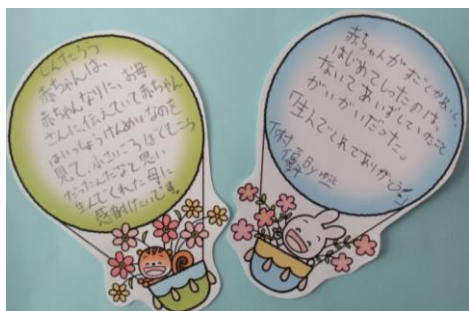 しんたろう
赤ちゃんは、
赤ちゃんなりに、お母
さんに、伝えていて赤ちゃん
はいっしょうけんめいなのを
見て、小さいころぼくもこう
だったんだなと思い
生んでくれた母に
感謝したいです。
赤ちゃんがすごくかわいい、
はじめてしったのは、
ないてあいずしていたこと
がいがいだった。
「生んでくれてありがとう」
下村